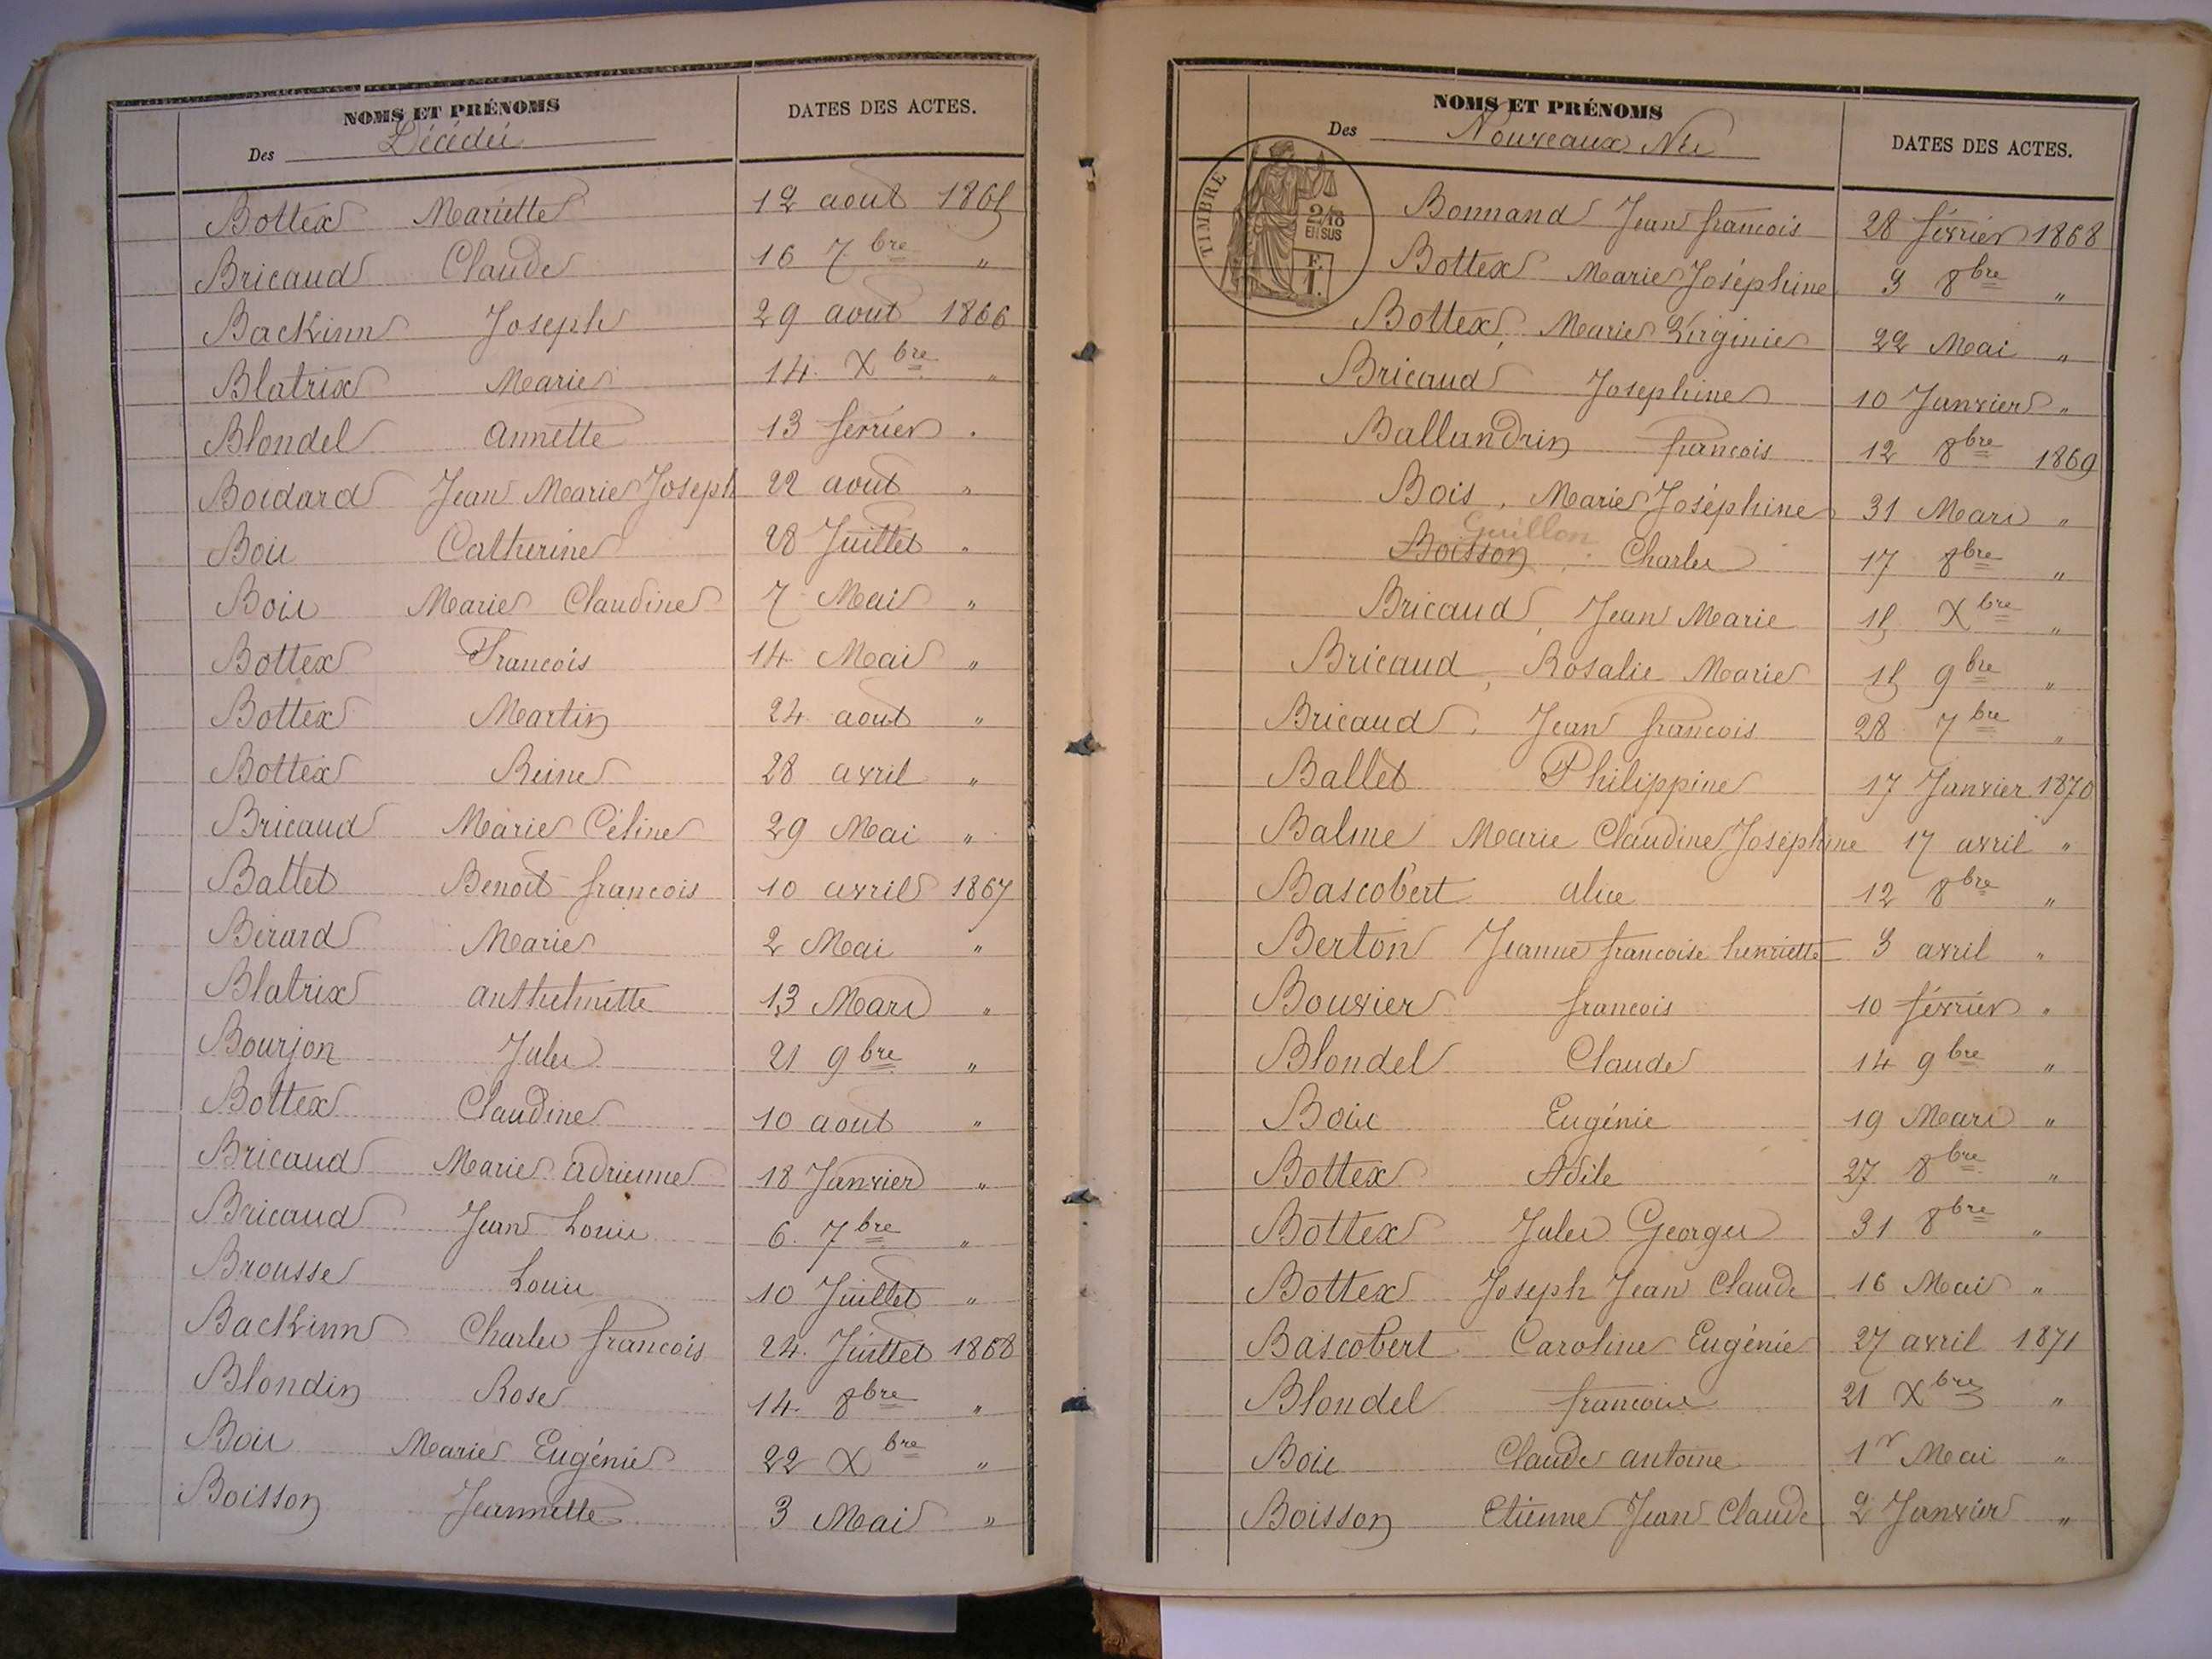 NOMS ET PRÉNOMS
Des Décédés
DATES DES ACTES.
Bottex Mariette 12 aout 1865
Bricaud Claude 16 7bre "
Backinn Joseph 29 aout 1866
Blatrix Marie 14 Xbre "
Blondel annette 13 février "
Boidard Jean Marie Joseph 22 aout "
Bois Catherine 28 Juillet "
Bois Marie Claudine 7 Mai "
Bottex Francois 14 Mai "
Bottex Martin 24 aout "
Bottex Reine 28 avril "
Bricaud Marie Céline 29 Mai "
Ballet Benoit francois 10 avril 1867
Bérard Marie 2 Mai "
Blatrix anthelmette 13 Mars "
Bourjon Jules 21 9bre "
Bottex Claudine 10 aout "
Bricaud Marie adrienne 18 Janvier "
Bricaud Jean Louis 6 7bre "
Brousse Louis 10 Juillet "
Backinn Charles francois 24 Juillet 1868
Blondin Rose 14 8bre "
Bois Marie Eugénie 22 Xbre "
Boisson Jeannette 3 Mai "
NOMS ET PRÉNOMS
Des Nouveaux Nés
DATES DES ACTES.
TIMBRE
2/10
EN SUS
F.
1.
Bonnand Jean francois 28 février 1868
Bottex Marie Joséphine 3 8bre "
Bottex, Marie Virginie 22 Mai "
Bricaud Josephine 10 Janvier "
Ballandrin francois 12 8bre 1869
Bois, Marie Joséphine 31 Mars "
Guillon
Boisson, Charles 17 8bre "
Bricaud, Jean Marie 15 Xbre "
Bricaud, Rosalie Marie 15 9bre "
Bricaud, Jean francois 28 7bre "
Ballet Philippine 17 Janvier 1870
Balme Marie Claudine Joséphine 17 avril "
Bascobert alice 12 8bre "
Berton Jeanne francoise henriette 3 avril "
Bouvier francois 10 février "
Blondel Claude 14 9bre "
Bois Eugénie 19 Mars "
Bottex Adile 27 8bre "
Bottex Jules Georges 31 8bre "
Bottex Joseph Jean Claude 16 Mai "
Bascobert Caroline Eugénie 27 avril 1871
Blondel francois 21 Xbre "
Bois Claude antoine 1er Mai "
Boisson Etienne Jean Claude 2 Janvier "